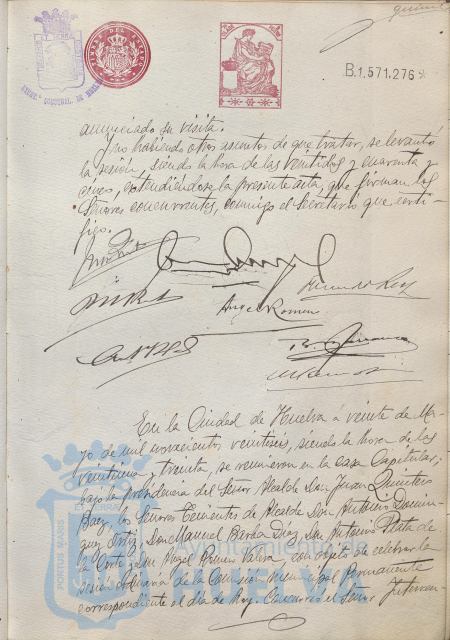 quince
TIMBRE DEL ESTADO
B.1.571.276
anunciado su visita.
Y no habiendo otros asuntos de que tratar, se levantó
la sesión, siendo la hora de las veintidos y cuarenta y
cinco, extendiéndose la presente acta, que firman los
Señores concurrentes, conmigo el Secretario que certi-
fico.
Angel Romero
En la Ciudad de Huelva á veinte de Ma-
yo de mil novecientos veintiseis, siendo la hora de las
veintiuna y treinta, se reunieron en la casa Capitular,
bajo la Presidencia del Señor Alcalde Don Juan Quintero
Baez, los Señores Tenientes de Alcalde Don Antonio Domin-
guez Ortiz, Don Manuel Barba Diaz, Don Antonio Plata de
la Corte y Don Angel Romero Valera, con objeto de celebrar la
sesión ordinaria de la Comisión municipal Permanente
correspondiente al día de hoy. Concurre el Señor Interven-
PORTUS MARIS
Ayuntamiento de
HUELVA